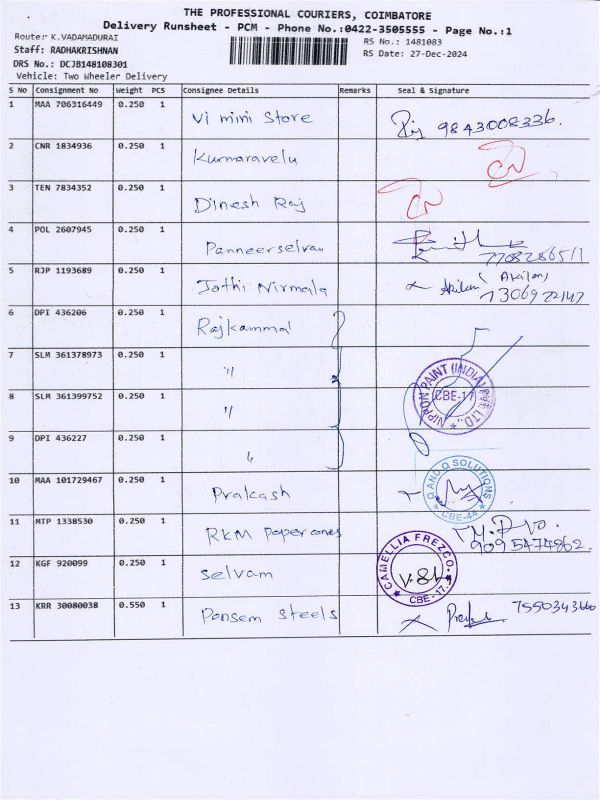 THE PROFESSIONAL COURIERS, COIMBATORE
Delivery Runsheet - PCM - Phone No.:0422-3505555 - Page No.:1
Route: K.VADAMADURAI
RS No.: 1481083
Staff: RADHAKRISHNAN
RS Date: 27-Dec-2024
DRS No.: DCJB148108301
Vehicle: Two Wheeler Delivery
S No Consignment No Weight PCS Consignee Details Remarks Seal & Signature
1 MAA 706316449 0.250 1 Vi mini Store 9843008336.
2 CNR 1834936 0.250 1 Kumaravelu
3 TEN 7834352 0.250 1 Dinesh Raj
4 POL 2607945 0.250 1 Panneerselvan 7708286511
5 RJP 1193689 0.250 1 Jothi Nirmala Akilan (Akilan)
6 DPI 436206 0.250 1 Rajkammal
7 SLM 361378973 0.250 1 "
8 SLM 361399752 0.250 1 "
NIPPON PAINT (INDIA) PVT. LTD., CBE-17
9 DPI 436227 0.250 1 "
10 MAA 101729467 0.250 1 Prakash
Q AND Q SOLUTIONS CBE-44
11 MTP 1338530 0.250 1 RKM Paper cones 9095474862.
12 KGF 920099 0.250 1 Selvam
CAMELLIA FREZCO CBE-17.
13 KRR 30080038 0.550 1 Ponsem Steels